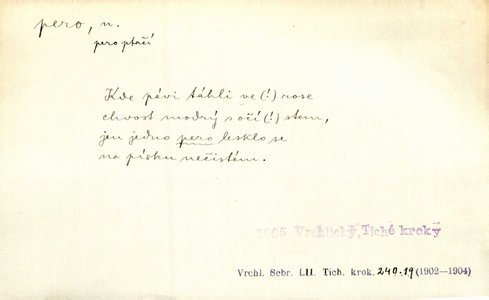 pero, n.
pero ptačí
Kde pávi táhli ve(!) rose
chvost modrý s očí(!) stem,
jen jedno pero lesklo se
na písku nečistém.
3005 Vrchlický, Tiché kroky
Vrchl. Sebr. LII. Tich. krok. 240.19 (1902—1904)